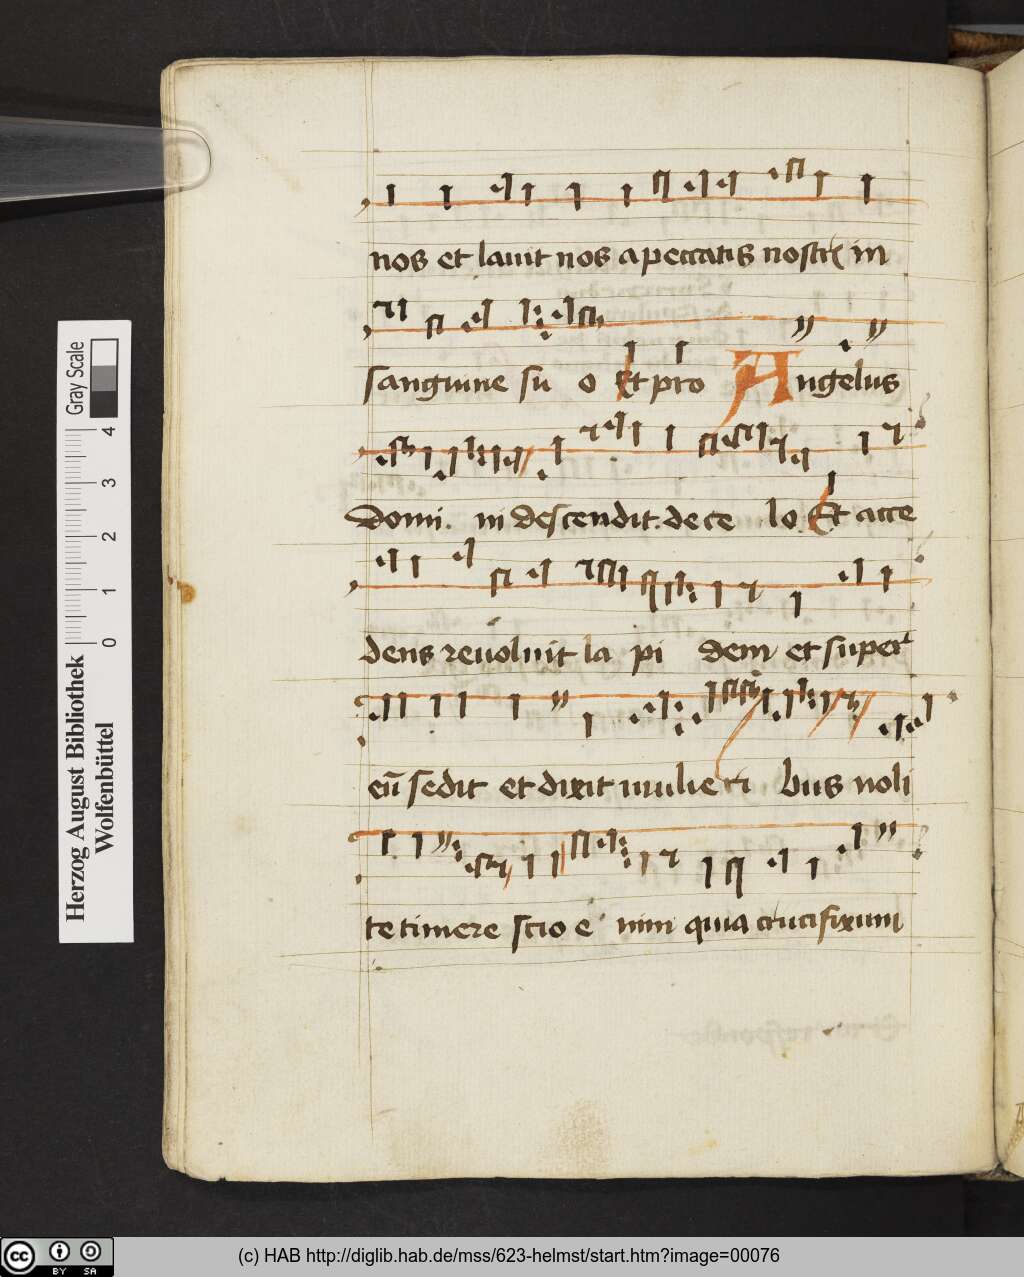 nos et lauit nos a peccatis nostris in
sanguine su o Et pro Angelus
domi. ni descendit. de ce lo. Et acce
dens reuoluit la pi dem et super
eū sedit et dixit mulie ri bus noli
te timere scio e nim quia crucifixum
Gray Scale
4
3
2
1
0
Herzog August Bibliothek
Wolfenbüttel
cc BY SA
(c) HAB http://diglib.hab.de/mss/623-helmst/start.htm?image=00076